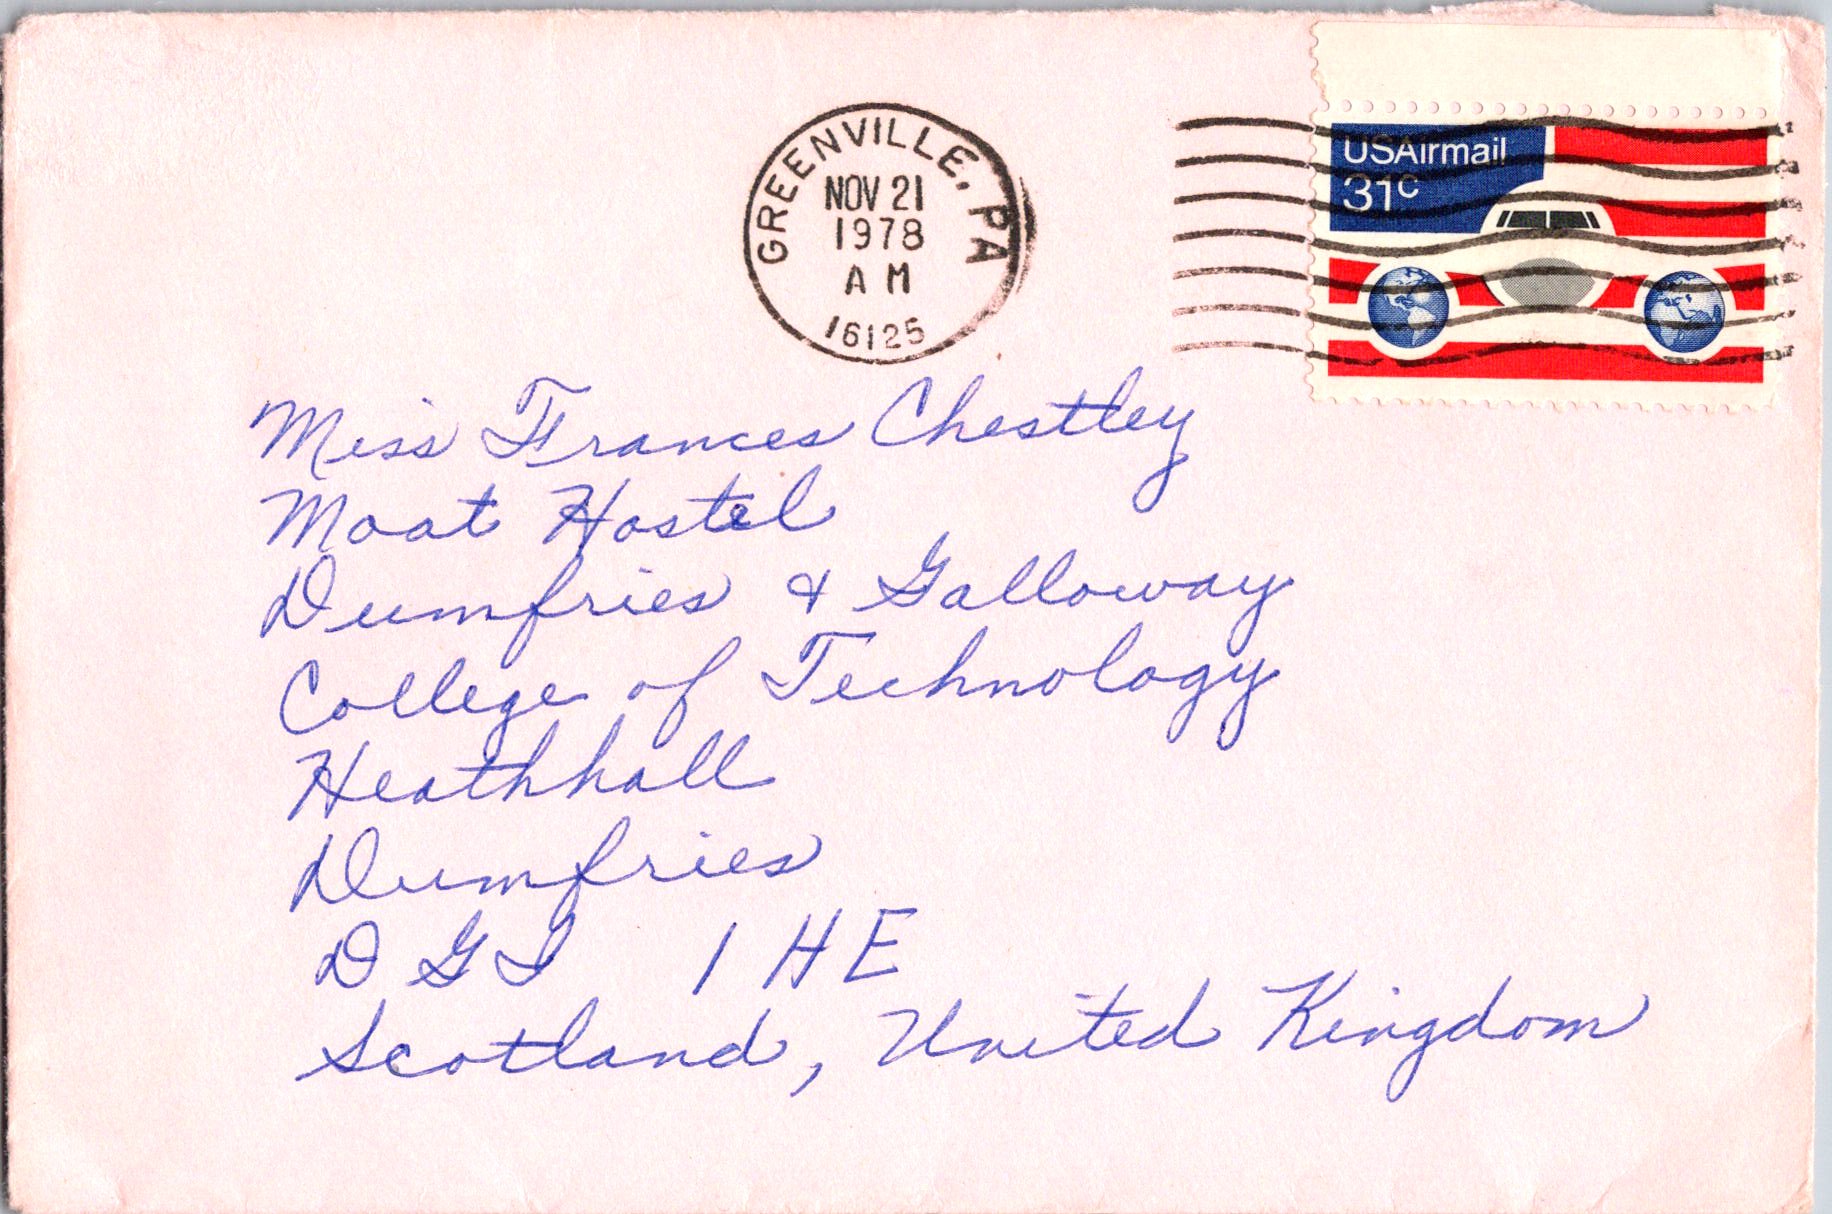 GREENVILLE, PA
NOV 21
1978
AM
16125
USAirmail
31c
Miss Frances Chestley
Moat Hostel
Dumfries & Galloway
College of Technology
Heathhall
Dumfries
DGI 1HE
Scotland, United Kingdom